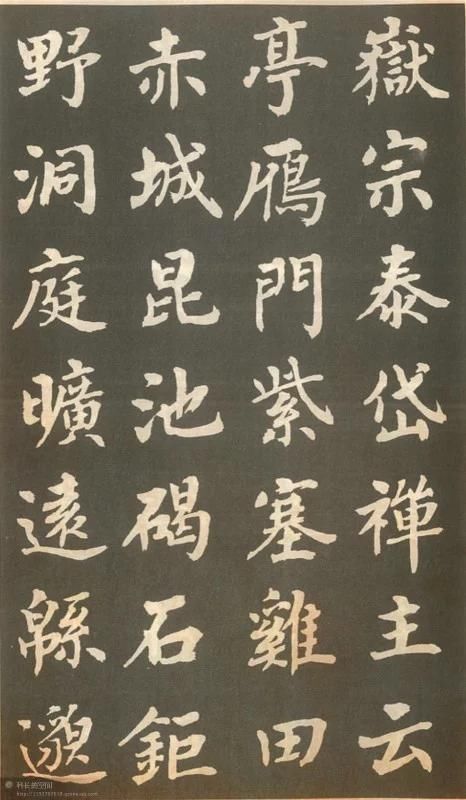 嶽宗泰岱禪主云
亭鴈門紫塞雞田
赤城昆池碣石鉅
野洞庭曠遠緜邈
科长的空间